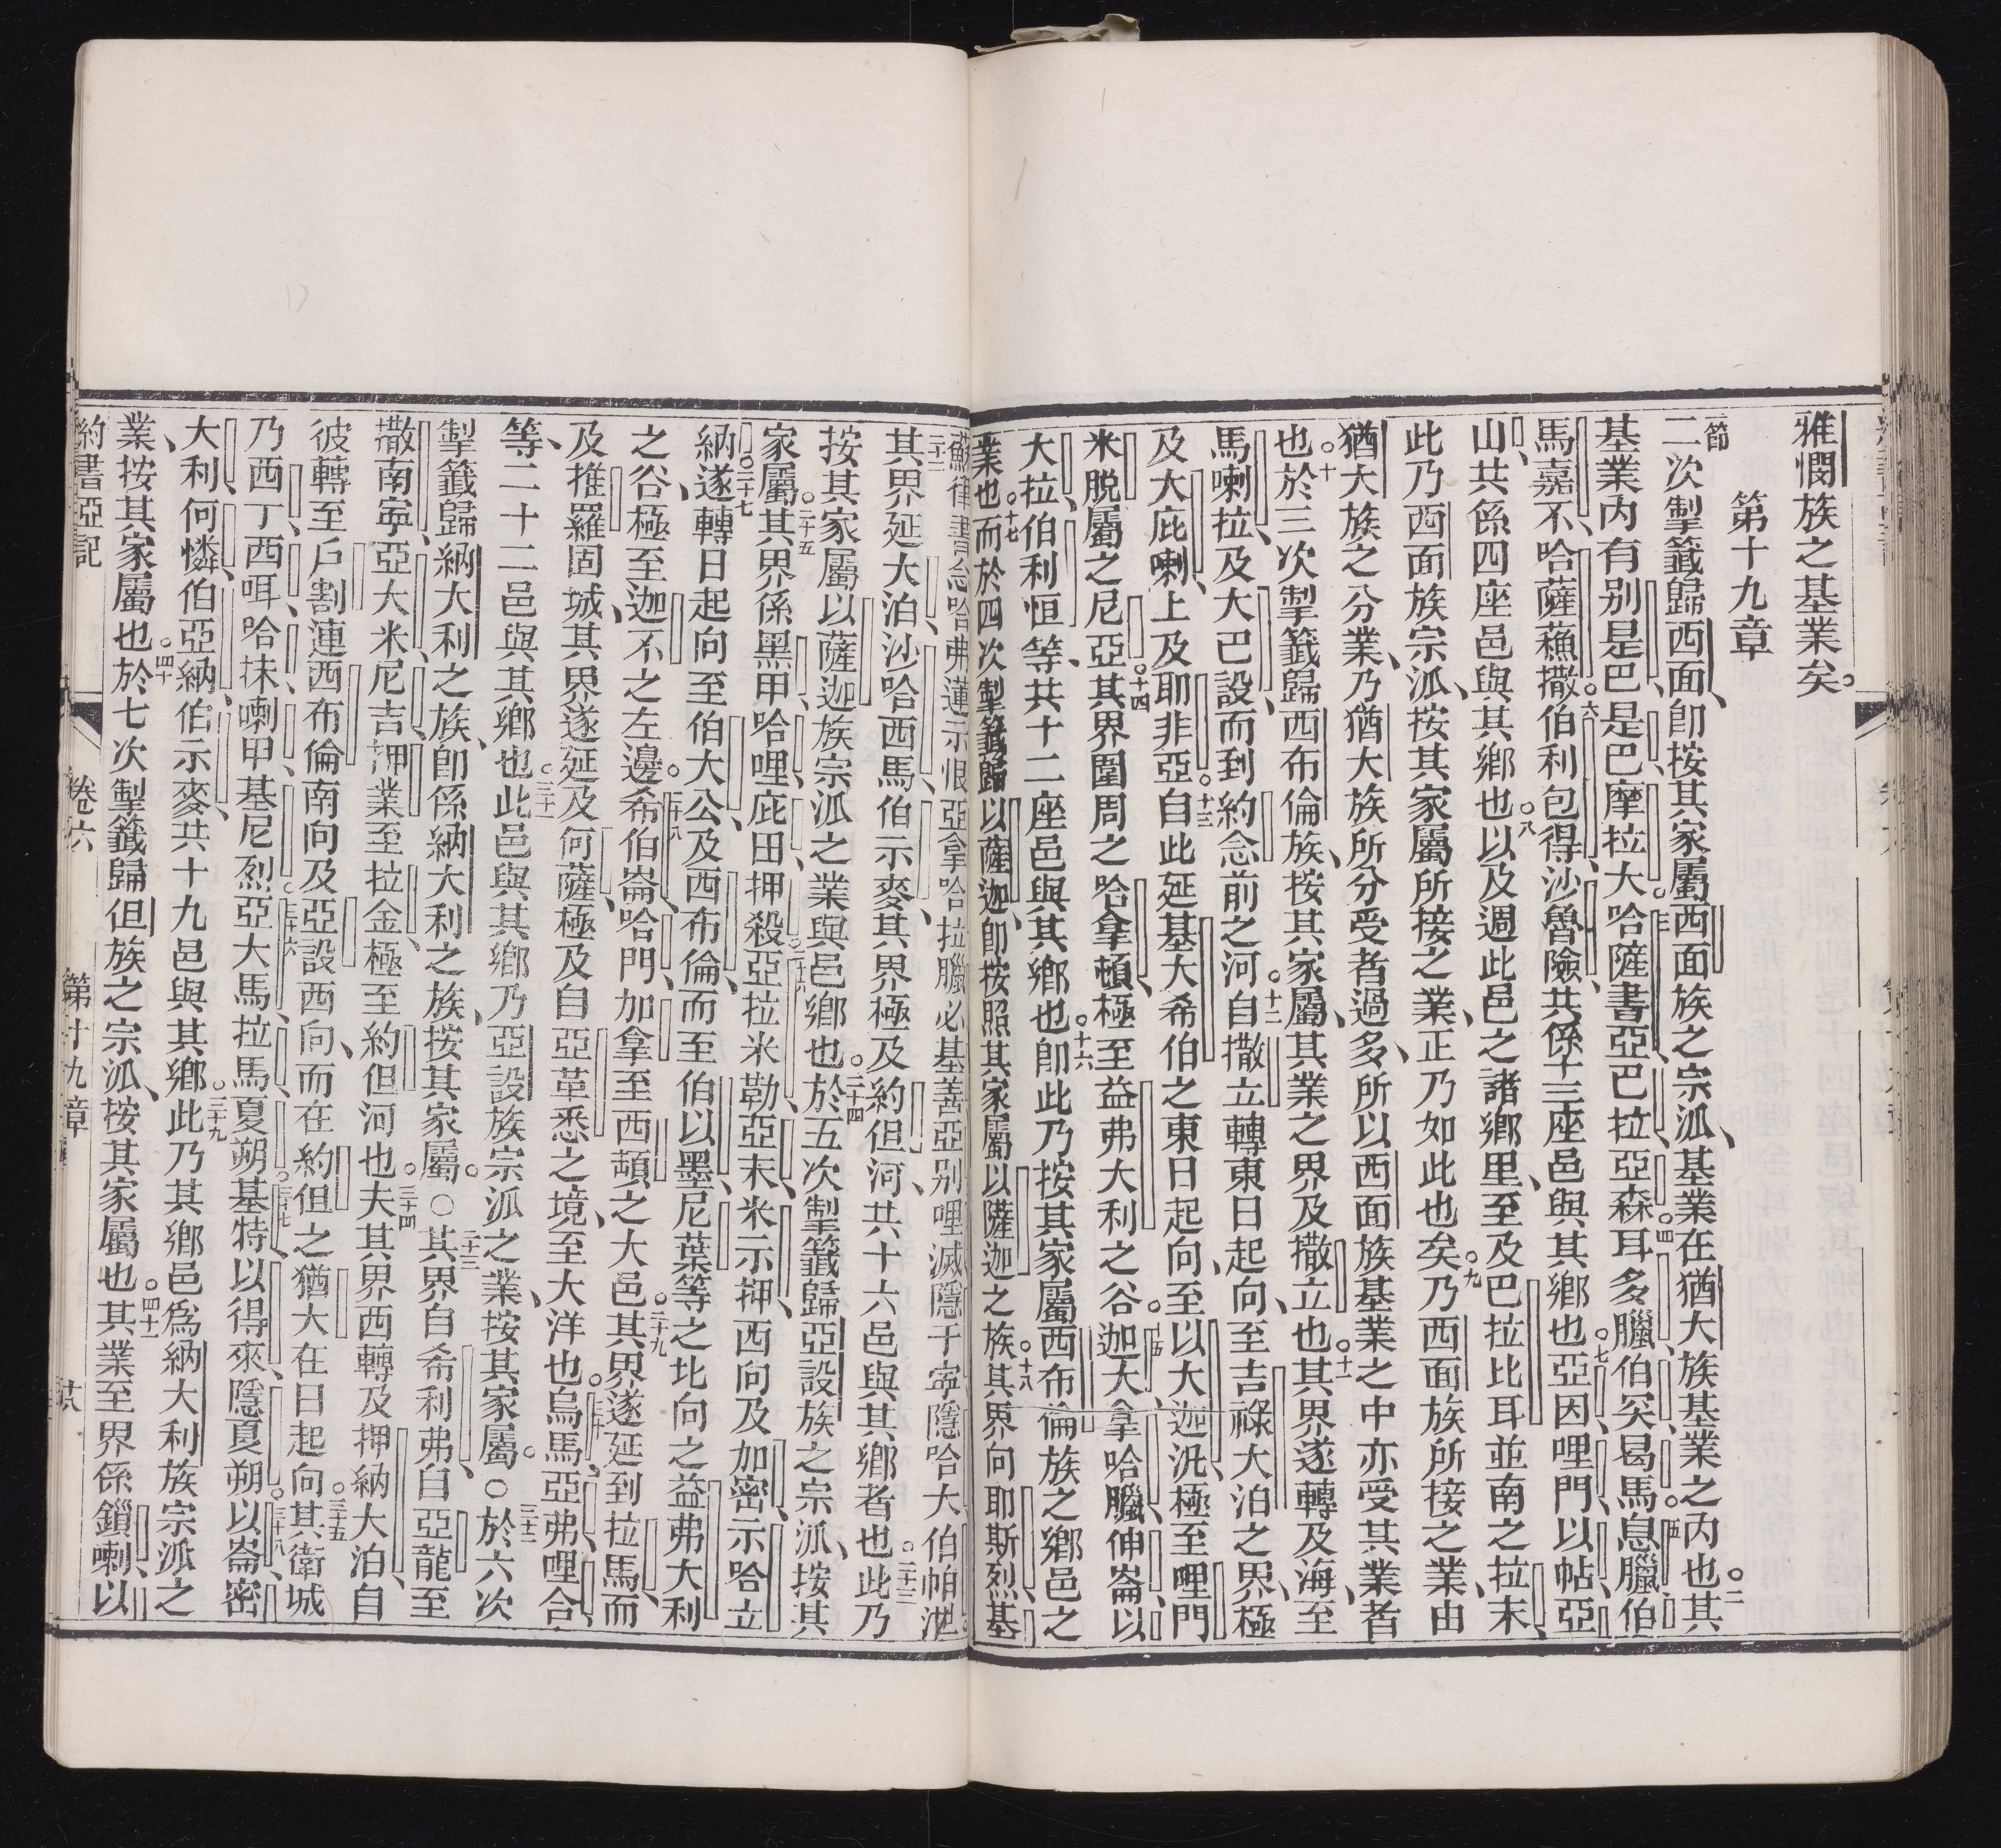 雅憫族之基業矣。
第十九章
節二次掣籤歸西面、卽按其家屬西面族之宗派、基業在猶大族基業之內也。二其
基業內有别是巴、是巴、摩拉大、三哈薩書亞、巴拉、亞森、四耳多臘、伯突、曷馬、五息臘、伯
馬嘉不、哈薩蘓撒、六伯利包得、沙魯險、共係十三座邑與其鄉也。七亞因、哩門、以帖、亞
山、共係四座邑與其鄉也。八以及週此邑之諸鄉里、至及巴拉比耳並南之拉末、
此乃西面族宗派、按其家屬所接之業、正乃如此也矣。九乃西面族所接之業、由
猶大族之分業、乃猶大族所分受者過多、所以西面族基業之中亦受其業者
也。十於三次掣籤歸西布倫族、按其家屬、其業之界及撒立也。十一其界遂轉及海、至
馬喇拉、及大巴設、而到約念前之河。十二自撒立轉東日起向、至吉祿大泊之界、極
及大庇喇、上及耶非亞。十三自此延基大希伯之東日起向、至以大迦冼、極至哩門
米脱屬之尼亞。十四其界圍周之哈拿頓、極至益弗大利之谷。十五迦大、拿哈臘、伸崙、以
大拉、伯利恒等、共十二座邑與其鄉也。十六卽此乃按其家屬西布倫族之鄉邑之
業也。十七而於四次掣籤歸以薩迦、卽按照其家屬以薩迦之族。十八其界向耶斯烈、基
其界延大泊、沙哈西馬、伯示麥、其界極及約但河、共十六邑與其鄉者也。二十三此乃
按其家屬以薩迦族宗派之業與邑鄉也。二十四於五次掣籤歸亞設族之宗派、按其
家屬。二十五其界係黑甲、哈哩、庇田、押殺、二十六亞拉米勒、亞末、米示押、西向及加密、示哈立
納。二十七遂轉日起向至伯大公、及西布倫、而至伯以墨、尼葉等之北向之益弗大利
之谷、極至迦不之左邊。二十八希伯崙、哈門、加拿、至西頓之大邑。二十九其界遂延到拉馬、而
及推羅固城、其界遂延及何薩、極及自亞革悉之境、至大洋也。三十烏馬、亞弗、哩合
等、二十二邑與其鄉也。三十一此邑與其鄉乃亞設族宗派之業、按其家屬。○三十二於六次
掣籤歸納大利之族、卽係納大利之族、按其家屬。○三十三其界自希利弗、自亞龍至
撒南寧、亞大米、尼吉、押業、至拉金、極至約但河也。三十四夫其界西轉及押納大泊、自
彼轉至戶割、連西布倫南向、及亞設西向、而在約但之猶大在日起向。三十五其衛城
乃西丁、西咡、哈抹、喇甲、基尼烈。三十六亞大馬、拉馬、夏朔、三十七基特、以得來、隱夏朔、三十八以崙、密
大利、何憐、伯亞納、伯示麥、共十九邑與其鄉。三十九此乃其鄉邑爲納大利族宗派之
業、按其家屬也。四十於七次掣籤歸但族之宗派、按其家屬也。四十一其業至界係鎻喇、以
約書亞記 卷六 第十九章